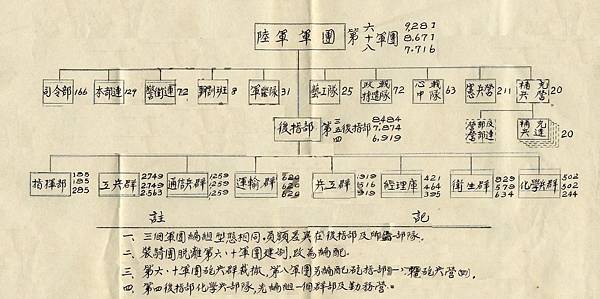 陸軍軍團
第六十八軍團
9,281
8,671
7,716
司令部 166
本部連 129
警衛連 72
8
軍樂隊 31
藝工隊 25
政戰特遣隊 72
心戰中隊 63
憲兵營 211
補充兵營 20
營部及營部連
補充兵連 20
後指部
第三五四後指部
8,484
7,874
6,919
指揮部 185 185 285
工兵群 2749 2749 2563
通信兵群 1259 1259 1259
運輸群 620 620
兵工群 1919 1516
經理庫 421 464 395
衛生群 829 579 634
化學兵群 502 502 244
註記
一、三個軍團編組型態相同,員額差異在後指部及
二、裝騎團脫離第六、十軍團建制,改為編配。
三、第六、十軍團砲兵群裁撤,第八軍團另編配砲指部
四、第四後指部化學兵部隊,先編組一個群部及勤務營。